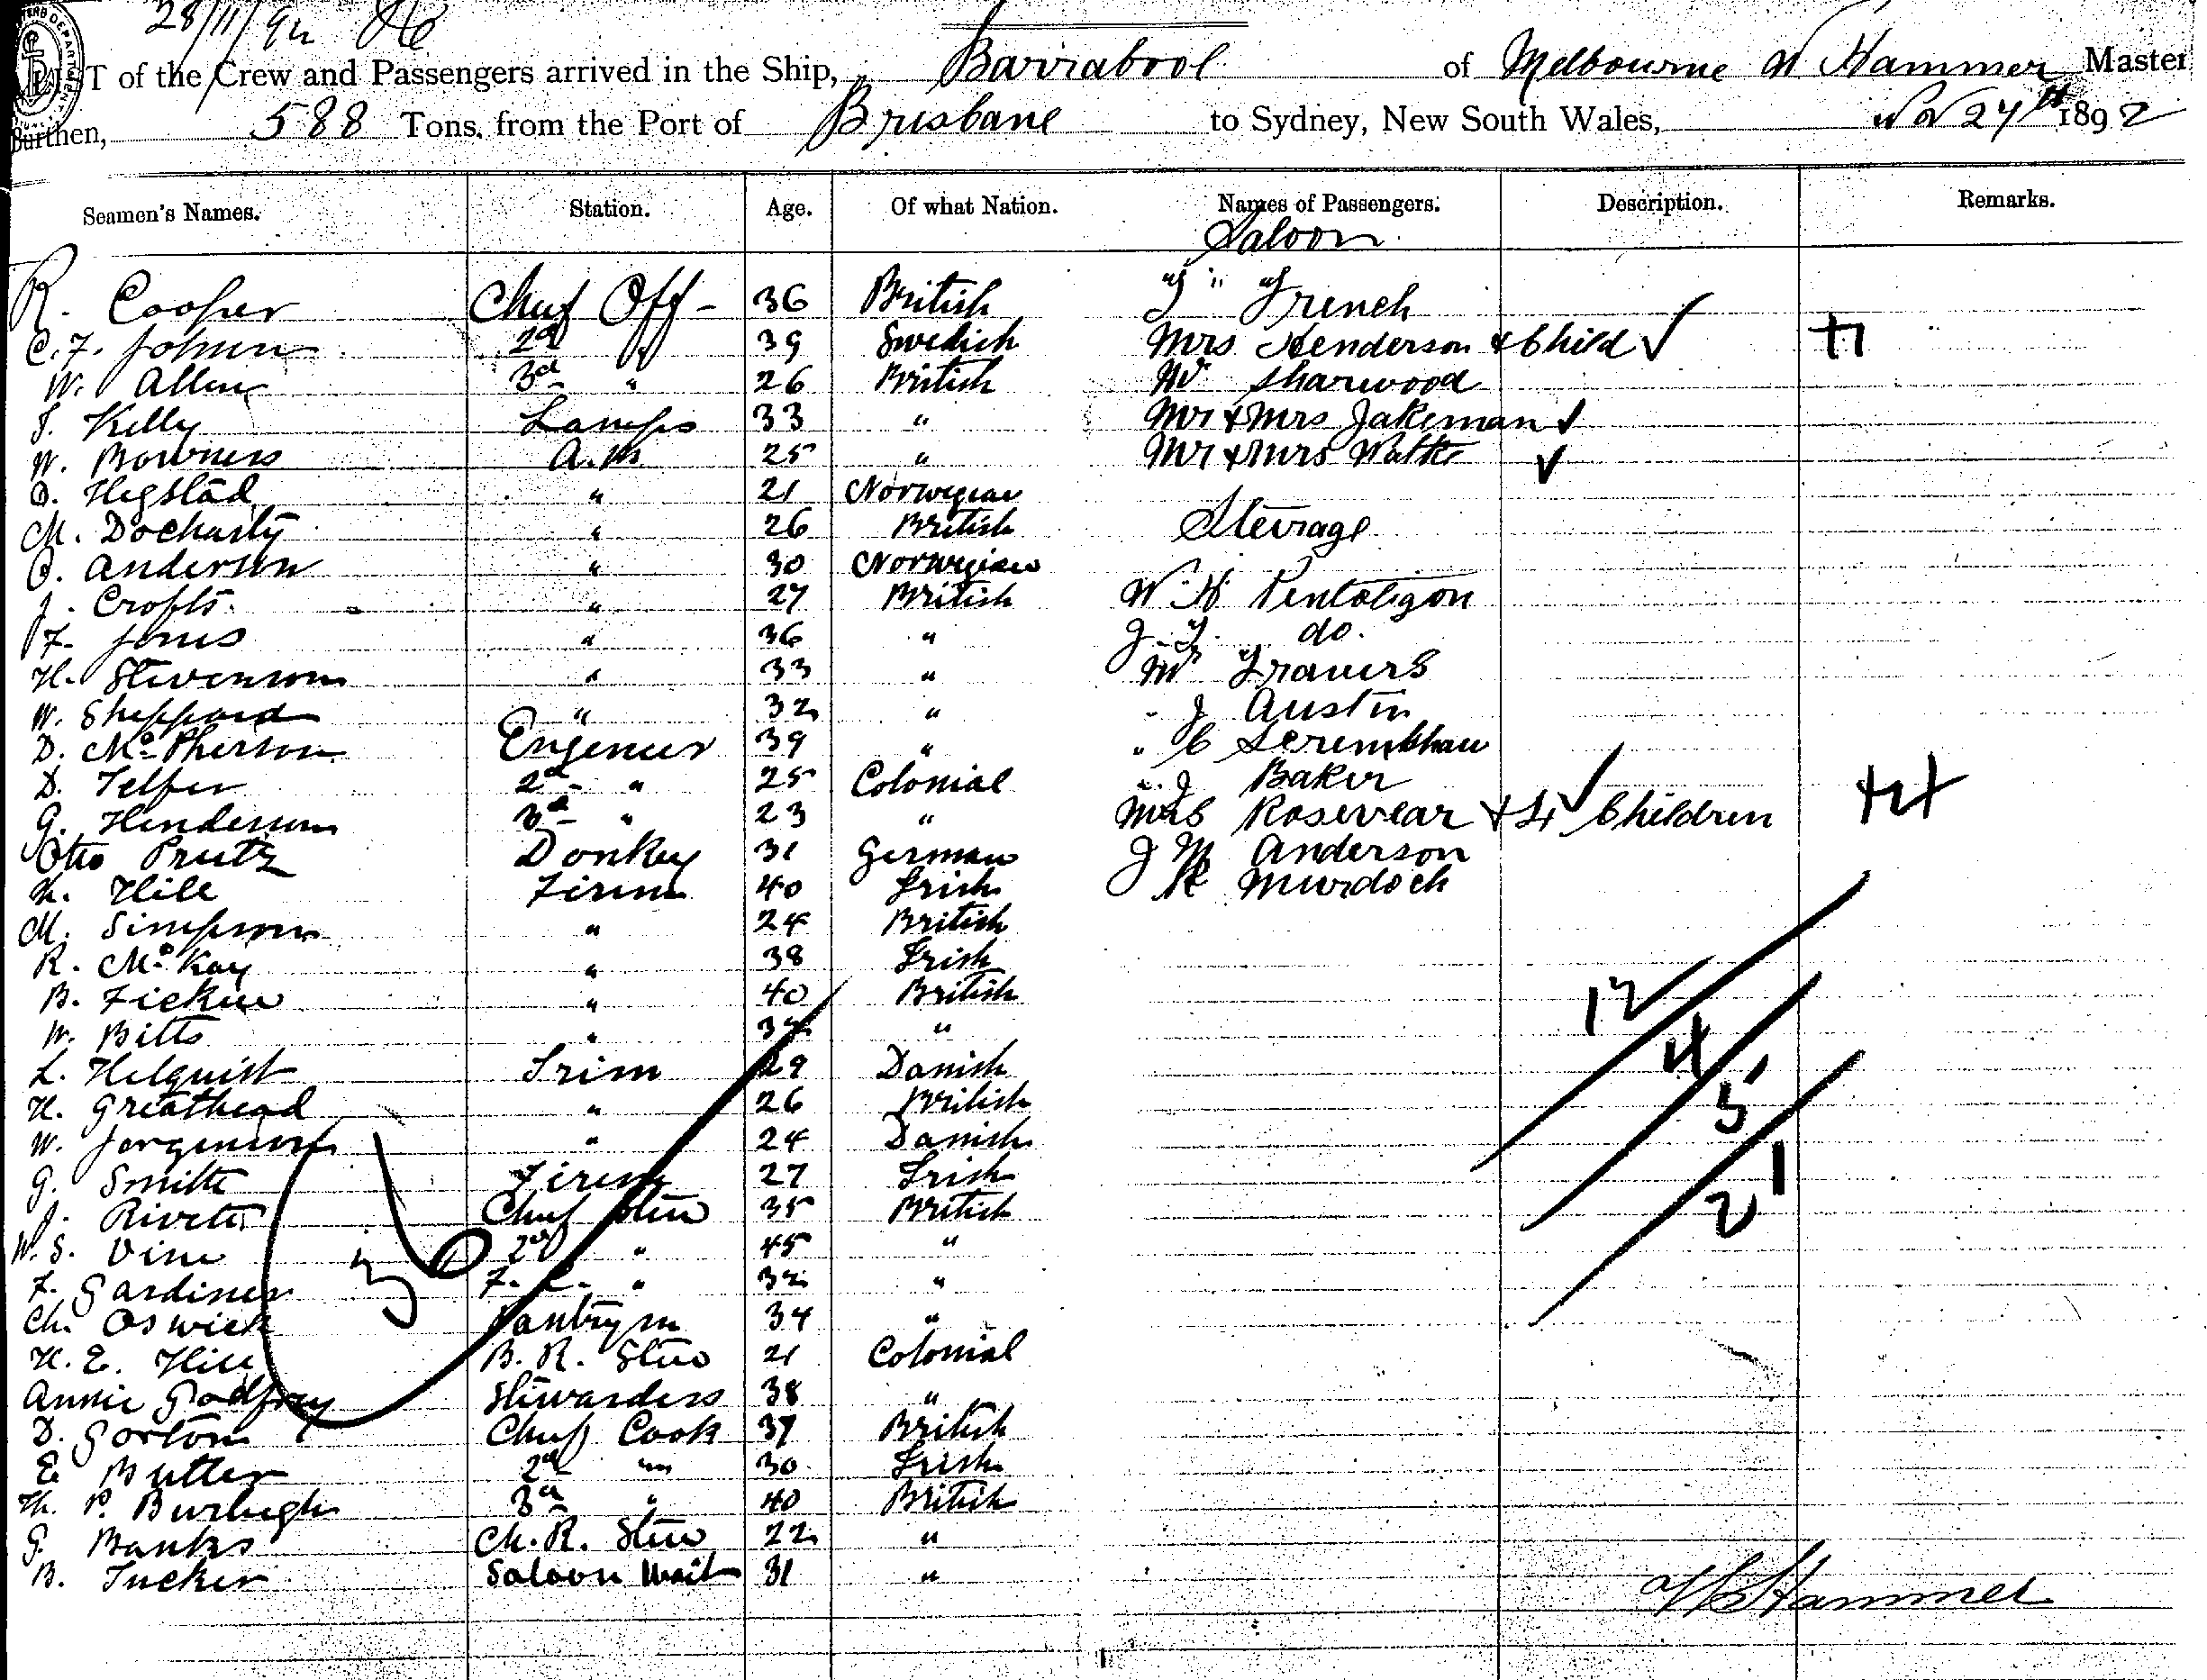 28/11/92
LIST of the Crew and Passengers arrived in the Ship, Barrabool of Melbourne W Hammer Master
Burthen, 588 Tons, from the Port of Brisbane to Sydney, New South Wales, Nov 27th 1892
Seamen's Names. Station. Age. Of what Nation. Names of Passengers. Description. Remarks.
Saloon
R. Cooper Chief Off - 36 British French
C. F. Johnsen 2d " 39 Swedish Mrs Henderson & Child
W. Allen 3d " 26 British Mr Sharwood
J. Kelly Lamps 33 " Mr & Mrs Jakeman
W. Bowness A.B 25 " Mr & Mrs Watts
O. Hegstad " 21 Norwegian
M. Docharty " 26 British Steerage
O. Anderson " 30 Norwegian
J. Crofts " 27 British W. H Pentoligon
F. Jones " 36 " J. Y. do.
H. Stevenson " 33 " Mr Travers
W. Sheppard " 32 " " J Austin
D. McPherson Engeneer 39 " " C
D. Telfer 2d " 25 Colonial " J Baker
G. Henderson 3d " 23 " Mrs Rosevear & 4 Children
Otto Prutz Donkey 31 German J M Anderson
H. Hill Firem 40 Irish J R Murdoch
M. Simpson " 24 British
R. McKay " 38 Irish
B. Ficken " 40 British
W. Bitts " 32 "
L. Helquist Trim 29 Danish
H. Greathead " 26 British
W. Jorgensen " 24 Danish
G. Smith Firem 27 Irish
J. Rivett Chief Stew 35 British
W. S. Vine 2d " 45 "
F. Gardiner F. C. " 32 "
Ch. Oswick Pantrym 34 "
H. E. Hill B. R. Stew 21 Colonial
Annie Godfrey Stewardess 38 "
D. Gorton Chief Cook 37 British
E. Butler 2d " 30 Irish
Th. P. Burleigh 3d " 40 British
G. Banks Ch. R. Stew 22 "
B. Tucker Saloon Wait 31 "
12
4
5
1
2
W Hammer